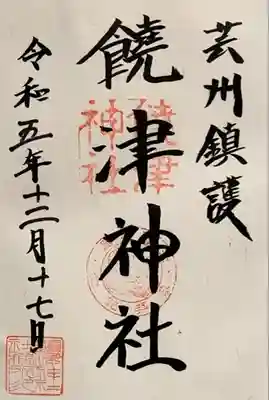 芸州鎮護
饒津神社
令和五年十二月十七日
饒津
神社